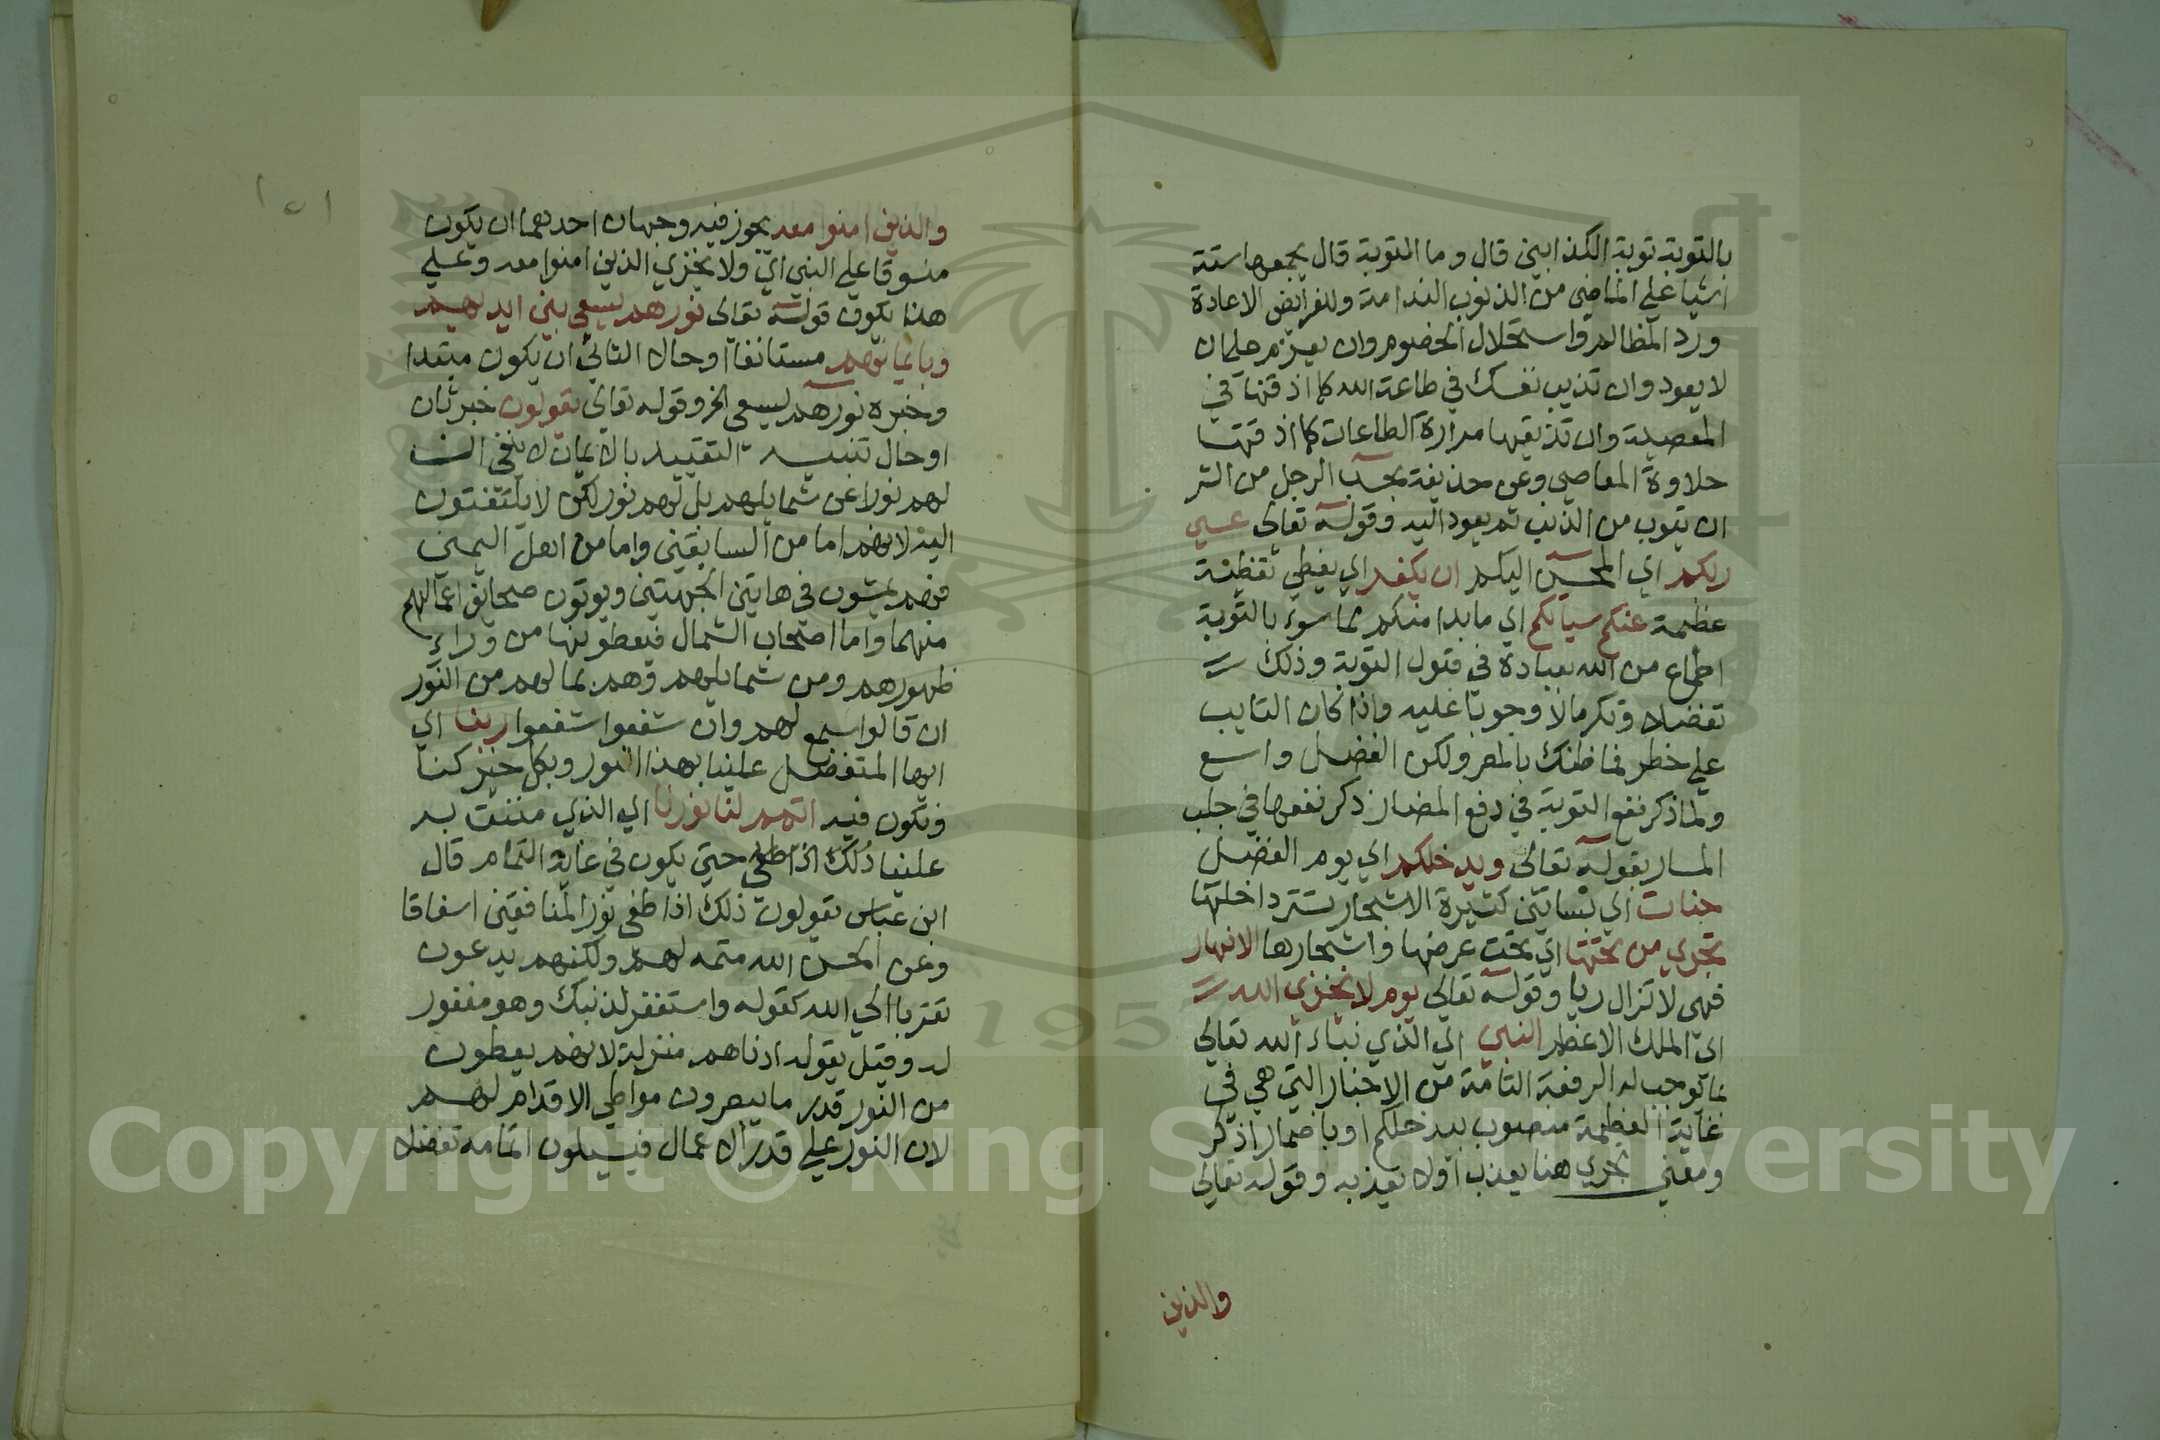 بالتوبة توبة الكذابين قال وما التوبة قال يجمعها ستة
اشيا علي الماضي من الذنوب الندامة وللفرايض الاعادة
ورد المظالم واستحلال الخصوم وان يعزم علي ان
لا يعود وان تذيب نفسك في طاعة الله كما اذقتها في
المعصية وان تذيقها مرارة الطاعات كما اذقتها
حلاوة المعاصي وعن حذيفة بحسب الرجل من الشر
ان يتوب من الذنب ثم يعود اليه وقوله تعالي عسي
ربكم اي المحسن اليكم ان يكفر اي يغطي تغطية
عظيمة عنكم سياتكم اي ما بدا منكم مما سوء بالتوبة
اطماع من الله لعباده في قبول التوبة وذلك
تفضلا وتكرما لا وجوبا عليه واذا كان التايب
علي خطر فما ظنك بالمصر ولكن الفضل واسع
ولما ذكر نفع التوبة في دفع المضار ذكر نفعها في جلب
المسار بقوله تعالي ويدخلكم اي يوم الفصل
جنات اي بساتين كثيرة الاشجار تستر داخلها
تجري من تحتها اي تحت غرفها واشجارها الانهار
فهي لا تزال ريا وقوله تعالي يوم لا يخزي الله
اي الملك الاعظم النبي اي الذي نباه الله تعالي
بما يوجب له الرفعة التامة من الاخبار التي هي في
غاية العظمة منصوب بيدخلكم او باضمار اذكر
ومعني يخزي هنا يعذب اولا يعذبه وقوله تعالي
والذين
١٥١
والذين امنوا معه يجوز فيه وجهان احدهما ان يكون
منسوقا علي النبي اي ولا يخزي الذين امنوا معه وعلي
هذا يكون قوله تعالي نورهم يسعي بين ايديهم
وبايمانهم مستانفا او حالا الثاني ان يكون مبتدا
وخبره نورهم يسعي الخ وقوله تعالي يقولون خبر ثان
او حال تنبيه التقييد بالايمان لا ينفي ان
لهم نورا عن شمايلهم بل لهم نور لكن لا يلتفتون
اليه لانهم اما من السابقين واما من اهل اليمين
فهم يمشون في هاتين الجهتين ويوتون صحايف اعمالهم
منهما واما اصحاب الشمال فيعطونها من وراء
ظهورهم ومن شمايلهم وهم بما لهم من النور
ان قالوا سمع لهم وان شفعوا شفعوا ربنا اي
ايها المتفضل علينا بهذا النور وبكل خير كنا
ونكون فيه اتمم لنا نورنا اي الذي مننت به
علينا ذلك اذا طفي حتي يكون في غاية التمام قال
ابن عباس يقولون ذلك اذا طفي نور المنافقين اشفاقا
وعن الحسن الله متمه لهم ولكنهم يدعون
تقربا الي الله كقوله واستغفر لذنبك وهو مغفور
له وقيل يقوله ادناهم منزلة لانهم يعطون
من النور قدر ما يبصرون مواطي الاقدام لهم
لان النور علي قدر الاعمال فيسيلون اتمامه تفضلا